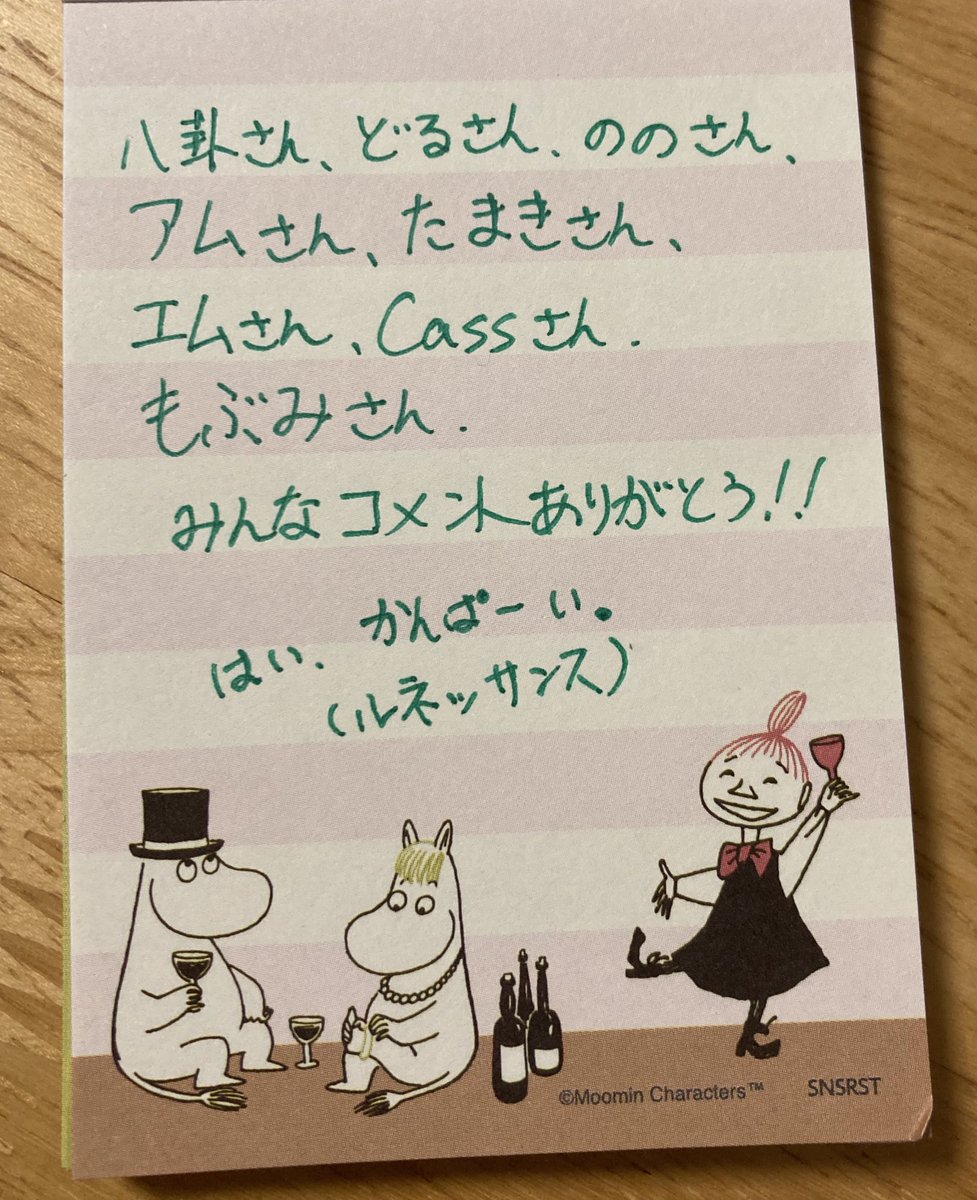 八卦さん、どるさん、ののさん、
アムさん、たまきさん、
エムさん、Cassさん.
もぶみさん.
みんなコメントありがとう!!
はい、かんぱーい。
(ルネッサンス)
©Moomin Characters™
SNSRST